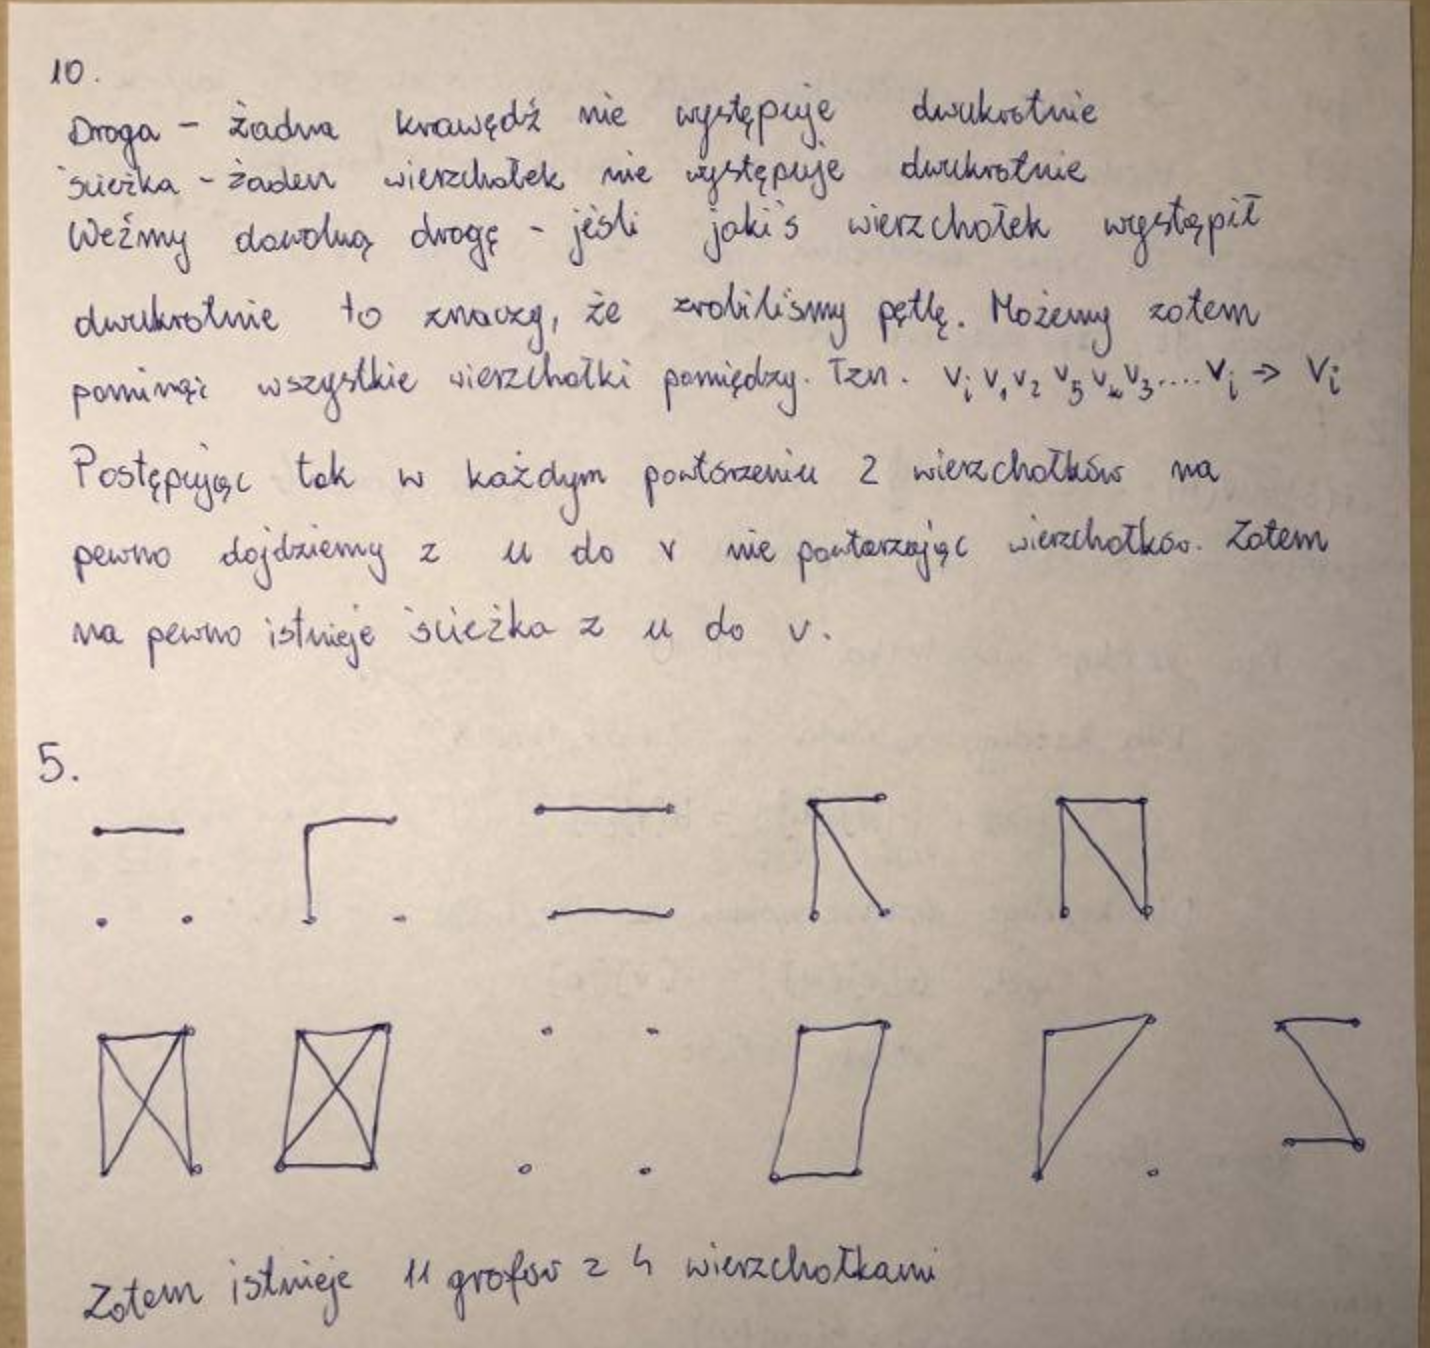 10.
Droga - żadna krawędź nie występuje dwukrotnie
ścieżka - żaden wierzchołek nie występuje dwukrotnie
Weźmy dowolną drogę - jeśli jakiś wierzchołek wystąpił
dwukrotnie to znaczy, że zrobiliśmy pętlę. Możemy zatem
pominąć wszystkie wierzchołki pomiędzy. Tzn. vᵢ v₁ v₂ v₅ v₃.... vᵢ → vᵢ
Postępując tak w każdym powtórzeniu 2 wierzchołków na
pewno dojdziemy z u do v nie powtarzając wierzchołków. Zatem
na pewno istnieje ścieżka z u do v.
5.
Zatem istnieje 11 grafów z 4 wierzchołkami